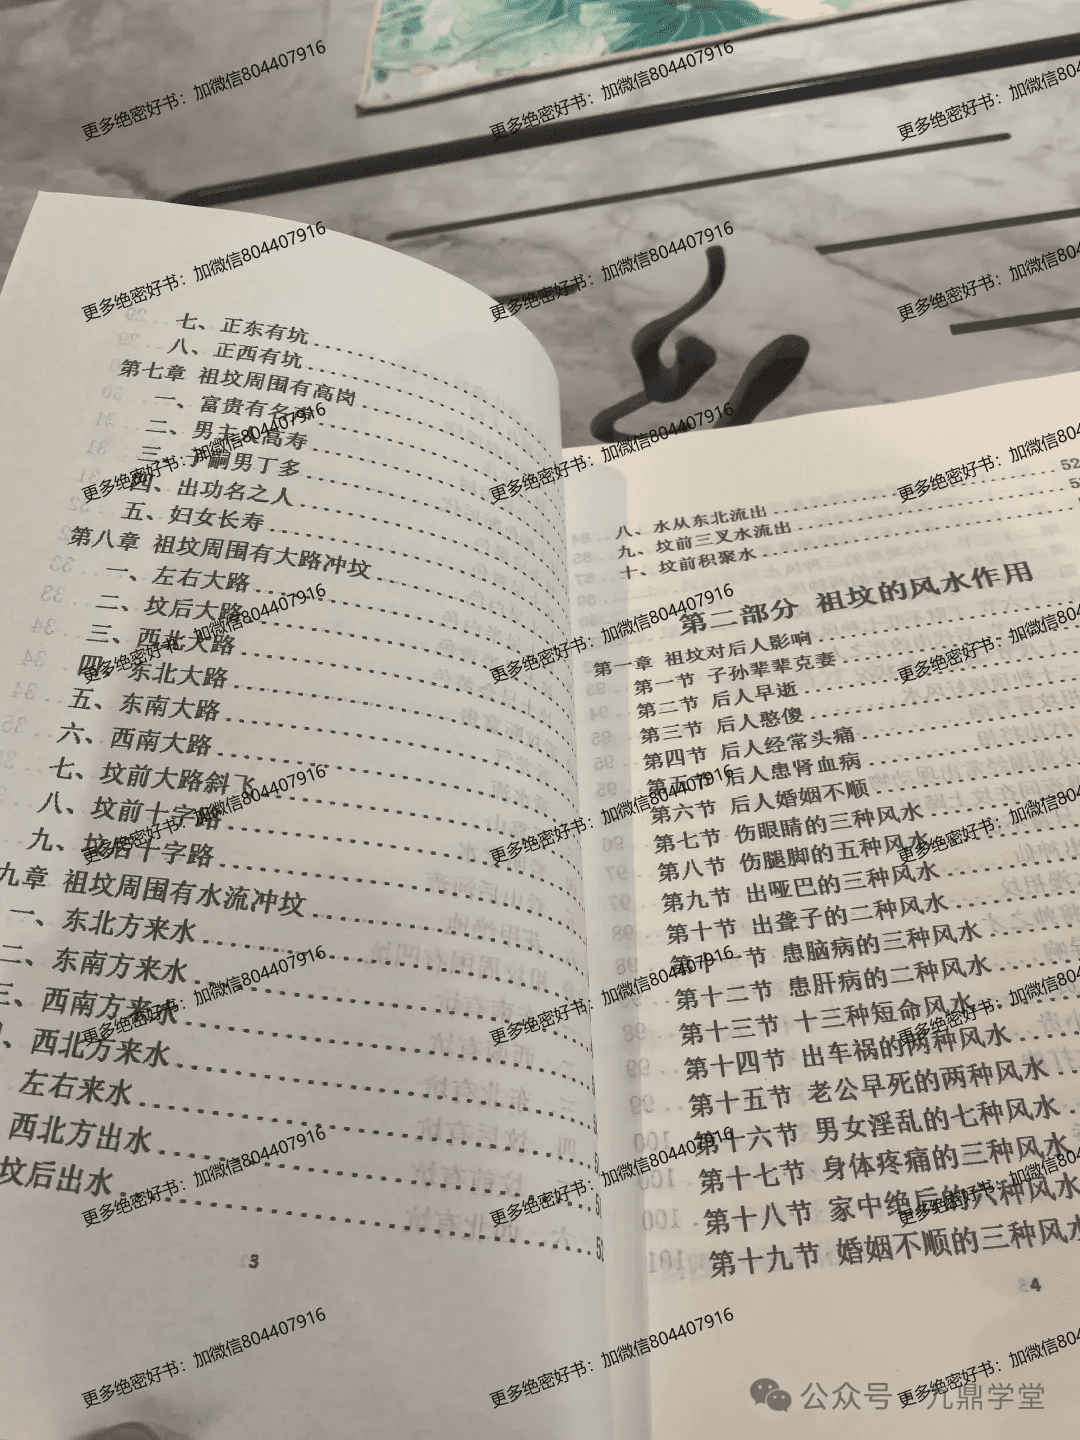 七、正东有坑
八、正西有坑
第七章 祖坟周围有高岗
一、富贵有名声
二、男主人高寿
三、子嗣男丁多
四、出功名之人
五、妇女长寿
第八章 祖坟周围有大路冲坟
一、左右大路
二、坟后大路
三、西北大路
四、东北大路
五、东南大路
六、西南大路
七、坟前大路斜飞
八、坟前十字路
九、坟后十字路
九章 祖坟周围有水流冲坟
一、东北方来水
二、东南方来水
三、西南方来水
、西北方来水
左右来水
西北方出水
坟后出水
3
八、水从东北流出 52
九、坟前三叉水流出
十、坟前积聚水
第二部分 祖坟的风水作用
第一章 祖坟对后人影响
第一节 子孙辈辈克妻
第二节 后人早逝
第三节 后人憨傻
第四节 后人经常头痛
第五节 后人患肾血病
第六节 后人婚姻不顺
第七节 伤眼睛的三种风水
第八节 伤腿脚的五种风水
第九节 出哑巴的三种风水
第十节 出聋子的二种风水
第十一节 患脑病的三种风水
第十二节 患肝病的二种风水
第十三节 十三种短命风水
第十四节 出车祸的两种风水
第十五节 老公早死的两种风水
第十六节 男女淫乱的七种风水
第十七节 身体疼痛的三种风水
第十八节 家中绝后的六种风水
第十九节 婚姻不顺的三种风水
4
更多绝密好书：加微信804407916
公众号 九鼎学堂